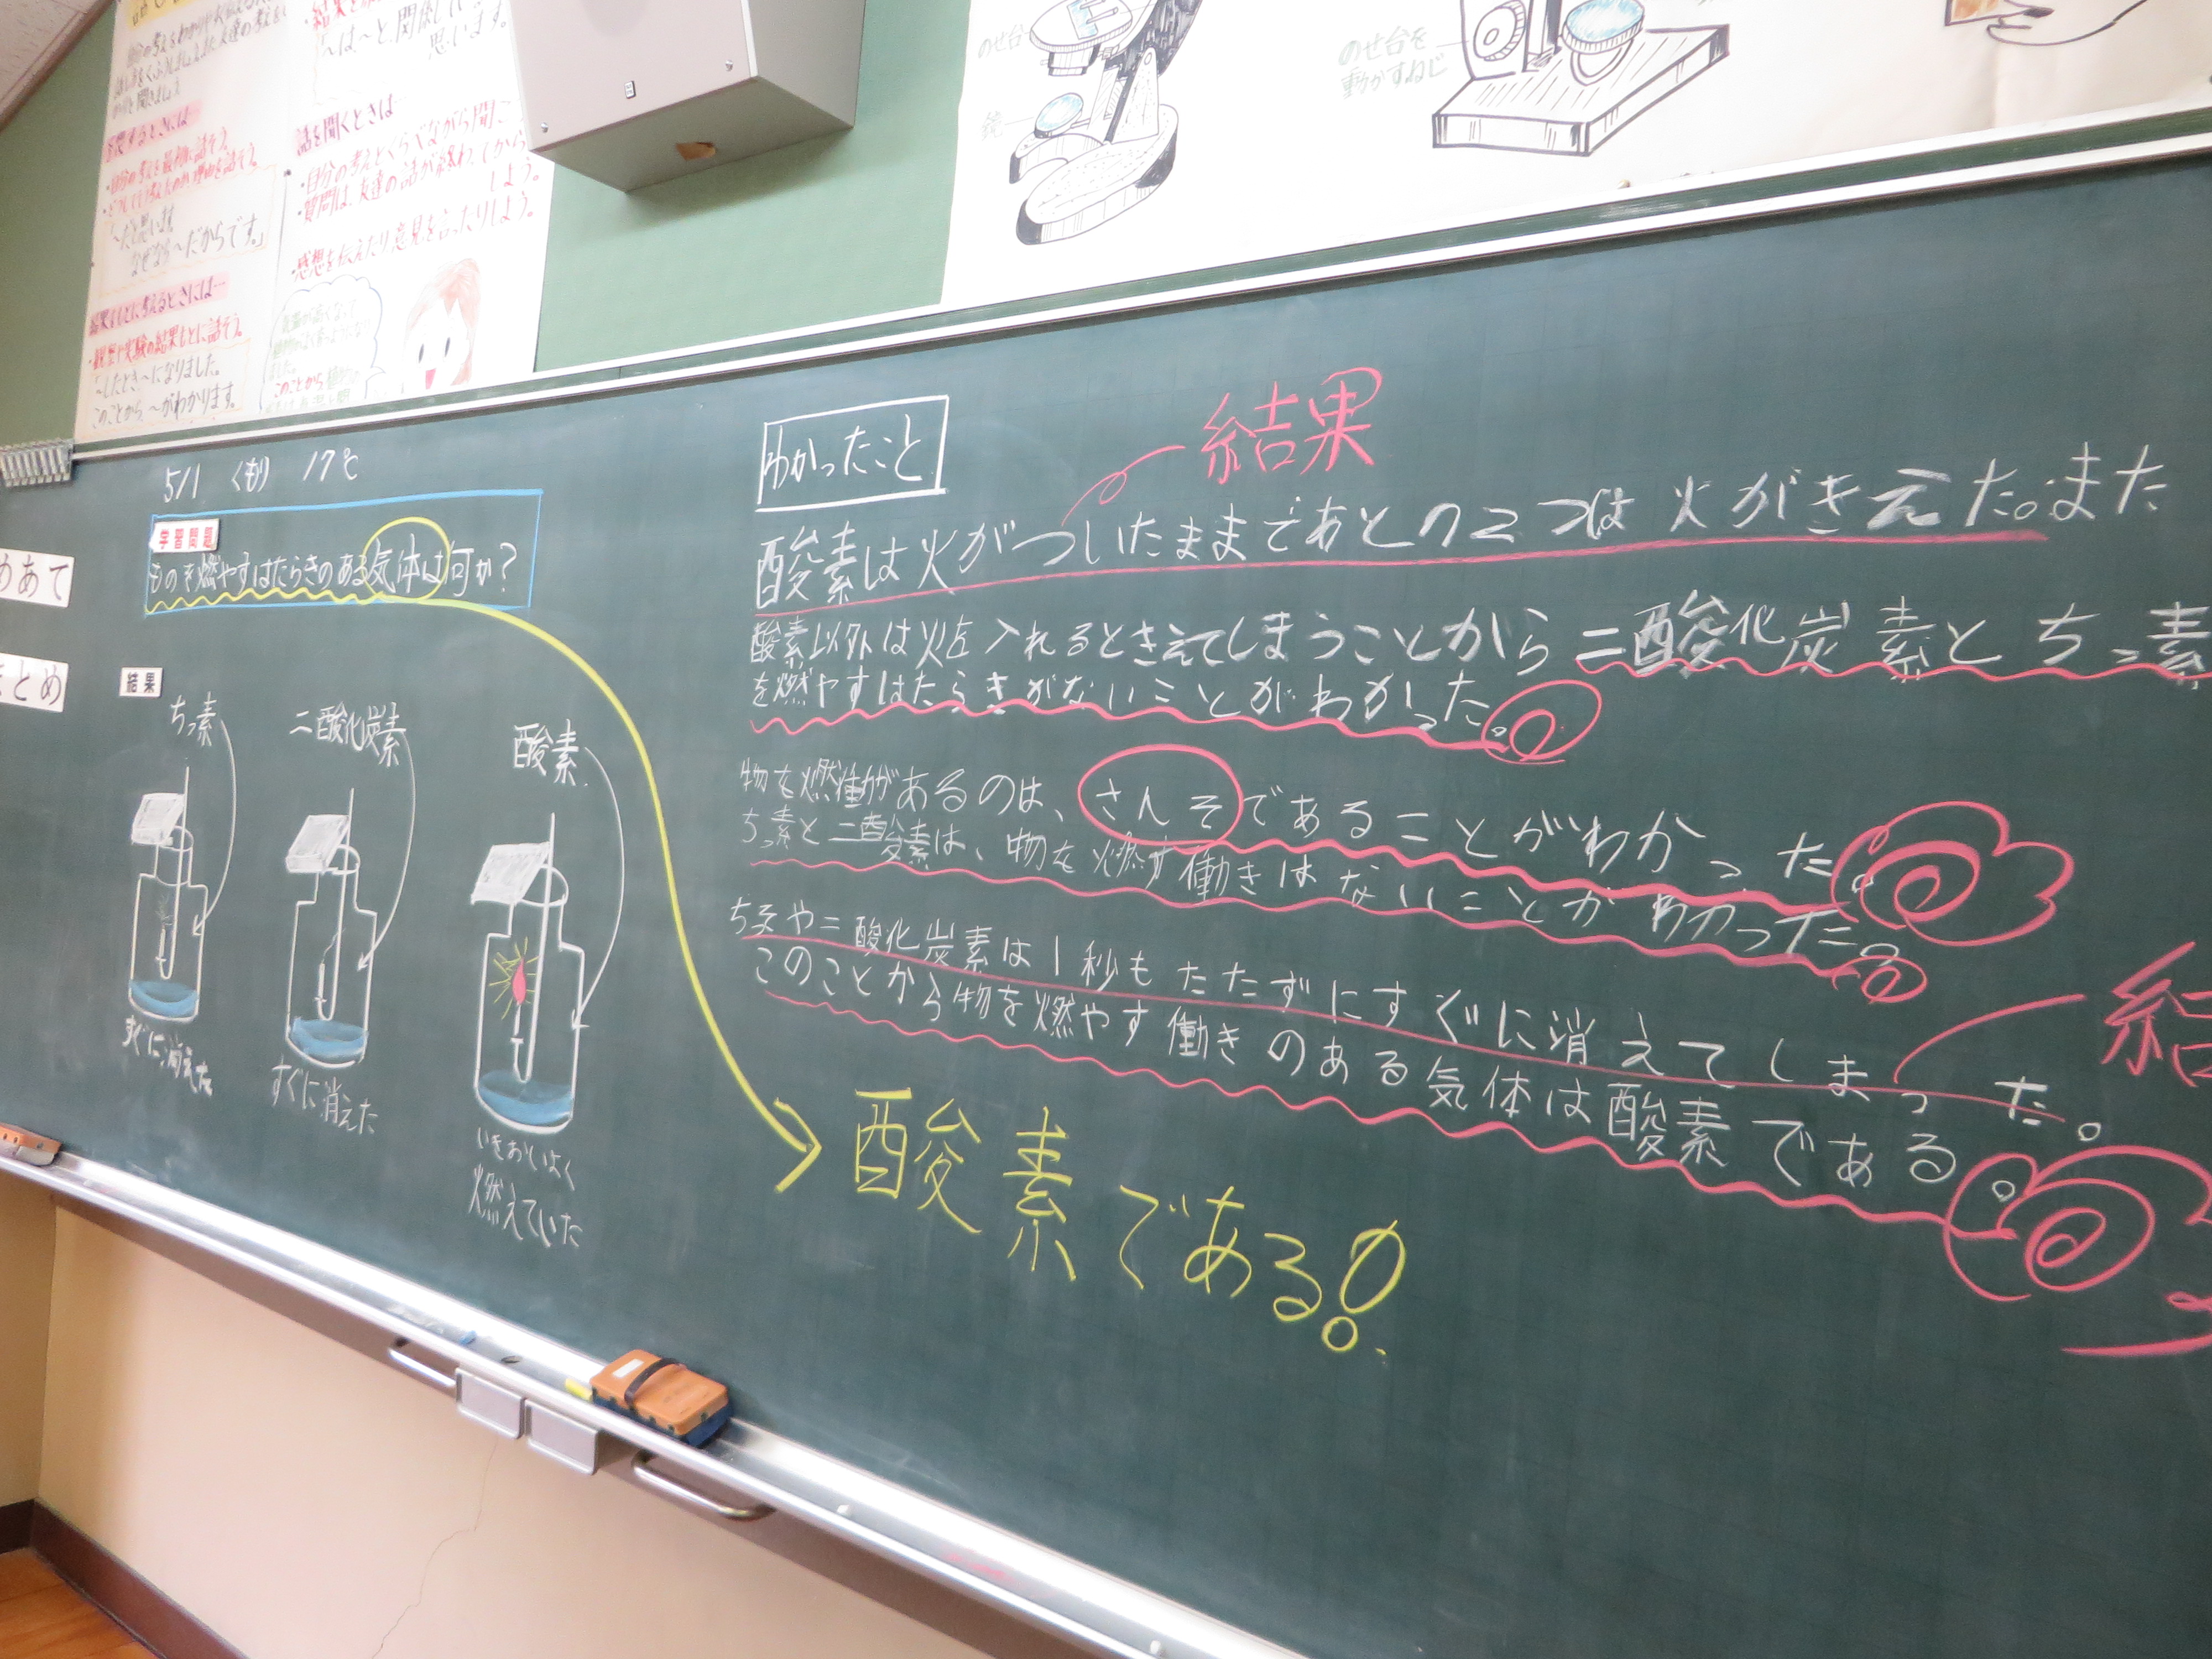 自分の考えを最初に話そう。
「〜だと思います。
なぜなら〜だからです。」
結果をもとに考えるときには…
・観察や実験の結果をもとに話そう。
「〜したとき〜になりました。
このことから〜がわかります。
「〜は、〜と関係して
思います。
話を聞くときは…
・自分の考えとくらべながら聞こ
・質問は、友達の話が終わってから
しよう。
・感想を伝えたり意見を言ったりしよう。
このことから
のせ台
鏡
のせ台を
動かすねじ
5/1 くもり 17℃
学習問題
ものを燃やすはたらきのある気体は何か?
めあて
まとめ
結果
ちっ素
二酸化炭素
酸素
すぐに消えた
すぐに消えた
いきおいよく
燃えていた
わかったこと
結果
酸素は火がついたままであとの2つは火がきえた。また
酸素以外は火を入れるときえてしまうことから二酸化炭素とちっ素
を燃やすはたらきがないことがわかった。
物を燃 があるのは、さんそであることがわかった。
ちっ素と二酸素は、物を燃す働きはないことがわかった。
ちっ素や二酸化炭素は1秒もたたずにすぐに消えてしまった。
このことから物を燃やす働きのある気体は酸素である。
結
酸素である!